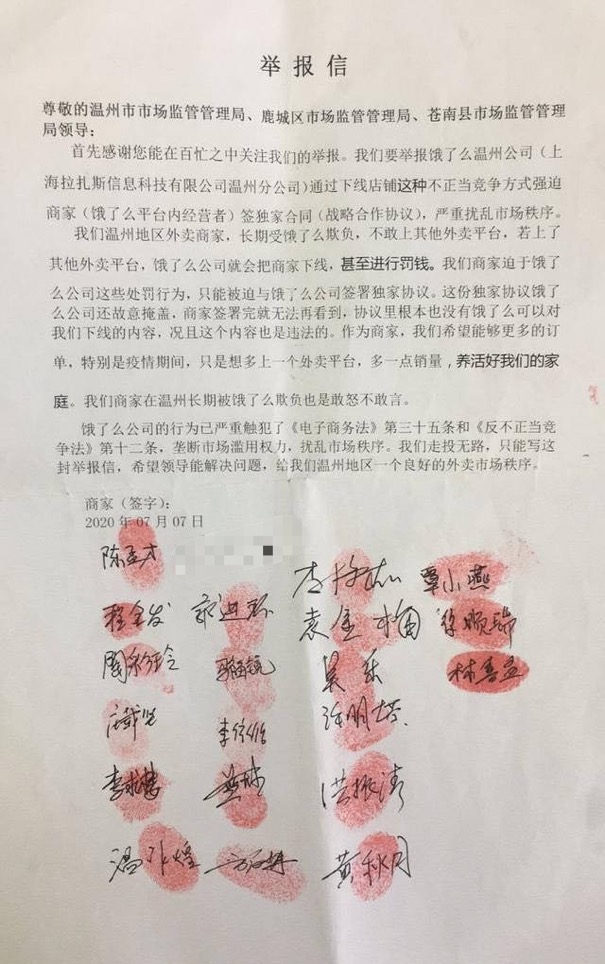 举报信
尊敬的温州市市场监管管理局、鹿城区市场监管管理局、苍南县市场监管管理
局领导：
首先感谢您能在百忙之中关注我们的举报。我们要举报饿了么温州公司（上
海拉扎斯信息科技有限公司温州分公司）通过下线店铺这种不正当竞争方式强迫
商家（饿了么平台内经营者）签独家合同（战略合作协议），严重扰乱市场秩序。
我们温州地区外卖商家，长期受饿了么欺负，不敢上其他外卖平台，若上了
其他外卖平台，饿了么公司就会把商家下线，甚至进行罚钱。我们商家迫于饿了
么公司这些处罚行为，只能被迫与饿了么公司签署独家协议。这份独家协议饿了
么公司还故意掩盖，商家签署完就无法再看到，协议里根本也没有饿了么可以对
我们下线的内容，况且这个内容也是违法的。作为商家，我们希望能够更多的订
单，特别是疫情期间，只是想多上一个外卖平台，多一点销量，养活好我们的家
庭。我们商家在温州长期被饿了么欺负也是敢怒不敢言。
饿了么公司的行为已严重触犯了《电子商务法》第三十五条和《反不正当竞
争法》第十二条，垄断市场滥用权力，扰乱市场秩序。我们走投无路，只能写这
封举报信，希望领导能解决问题，给我们温州地区一个良好的外卖市场秩序。
商家（签字）：
2020年07月07日
覃小燕
程金发
袁金梅
徐顺瑞
吴乐
洪振涛
黄秋月